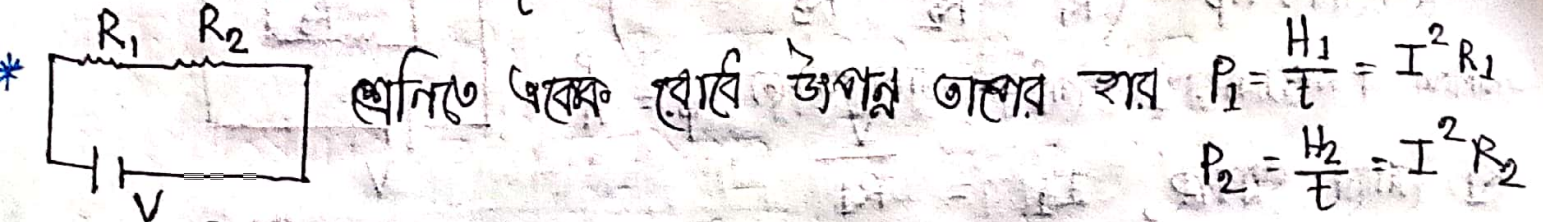 R₁ R₂
* শ্রেনিতে একক রোধে উৎপন্ন তাপের হার P₁ = H₁/t = I²R₁
P₂ = H₂/t = I²R₂
V